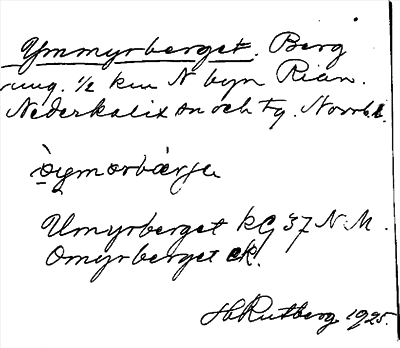 Ymmyrberget. Berg
ung. ½ km N byn Rian.
Nederkalix sn och tg. Norrb. l.
Umyrberget kG 37 N.M.
Omyrberget ek.
H Rutberg 1925.